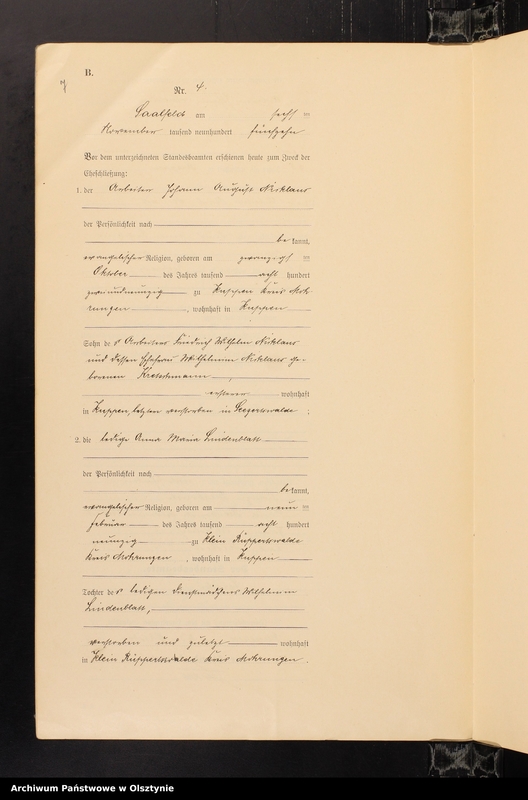 B.
7
Nr. 4.
Saalfeld am sechsten
November tausend neunhundert fünfzehn
Vor dem unterzeichneten Standesbeamten erschienen heute zum Zweck der
Eheschließung:
1. der Arbeiter Johann August Nicklaus
der Persönlichkeit nach
be kannt,
evangelischer Religion, geboren am zwanzigsten
Oktober des Jahres tausend acht hundert
zweiundneunzig zu Kuppen Kreis Moh-
rungen, wohnhaft in Kuppen
Sohn des Arbeiters Friedrich Wilhelm Nicklaus
und dessen Ehefrau Wilhelmine Nicklaus ge-
borenen,
ersterer wohnhaft
in Kuppen, letztere verstorben in Seegertswalde;
2. die ledige Anna Maria Lindenblatt
der Persönlichkeit nach
bekannt,
evangelischer Religion, geboren am neunten
Februar des Jahres tausend acht hundert
neunzig zu Klein Rüppertswalde
Kreis Mohrungen, wohnhaft in Kuppen
Tochter des ledigen Dienstmädchens Wilhelmine
Lindenblatt,
verstorben und zuletzt wohnhaft
in Klein Rüppertswalde Kreis Mohrungen.
Archiwum Państwowe w Olsztynie